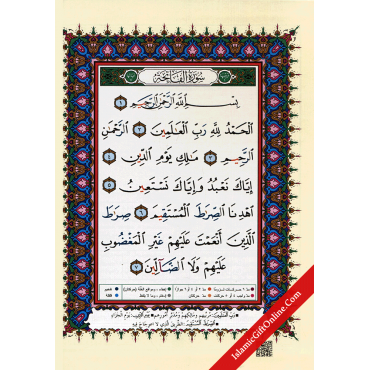 سُورَةُ الفَاتِحَةِ
بِسْمِ ٱللَّهِ ٱلرَّحْمَٰنِ ٱلرَّحِيمِ ١
ٱلْحَمْدُ لِلَّهِ رَبِّ ٱلْعَٰلَمِينَ ٢ ٱلرَّحْمَٰنِ
ٱلرَّحِيمِ ٣ مَٰلِكِ يَوْمِ ٱلدِّينِ ٤
إِيَّاكَ نَعْبُدُ وَإِيَّاكَ نَسْتَعِينُ ٥
ٱهْدِنَا ٱلصِّرَٰطَ ٱلْمُسْتَقِيمَ ٦ صِرَٰطَ
ٱلَّذِينَ أَنْعَمْتَ عَلَيْهِمْ غَيْرِ ٱلْمَغْضُوبِ
عَلَيْهِمْ وَلَا ٱلضَّآلِّينَ ٧
IslamicGiftOnline.Com